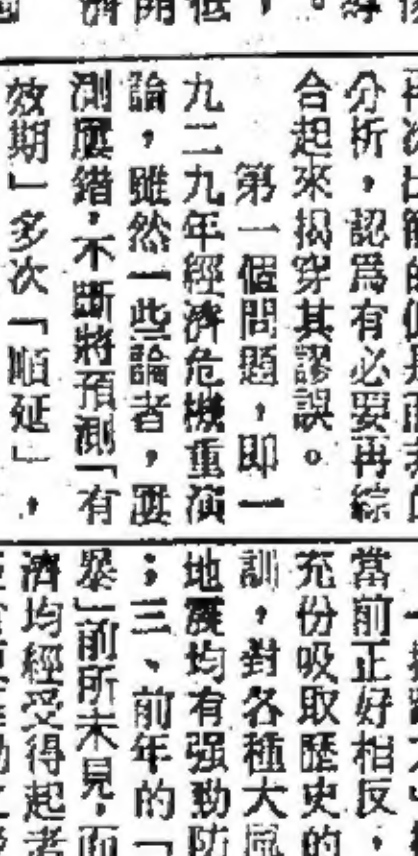 分析，認爲有必要再綜
合起來揭穿其謬誤。
第一個問題，即一
九二九年經濟危機重演
論，雖然一些論者，屢
測屢錯，不斷將預測「有
效期」多次「順延」，
當前正好相反，
充份吸取歷史的
訓，對各種大風
地震均有强勁防
；三、前年的「
暴」前所未見，而
濟均經受得起考